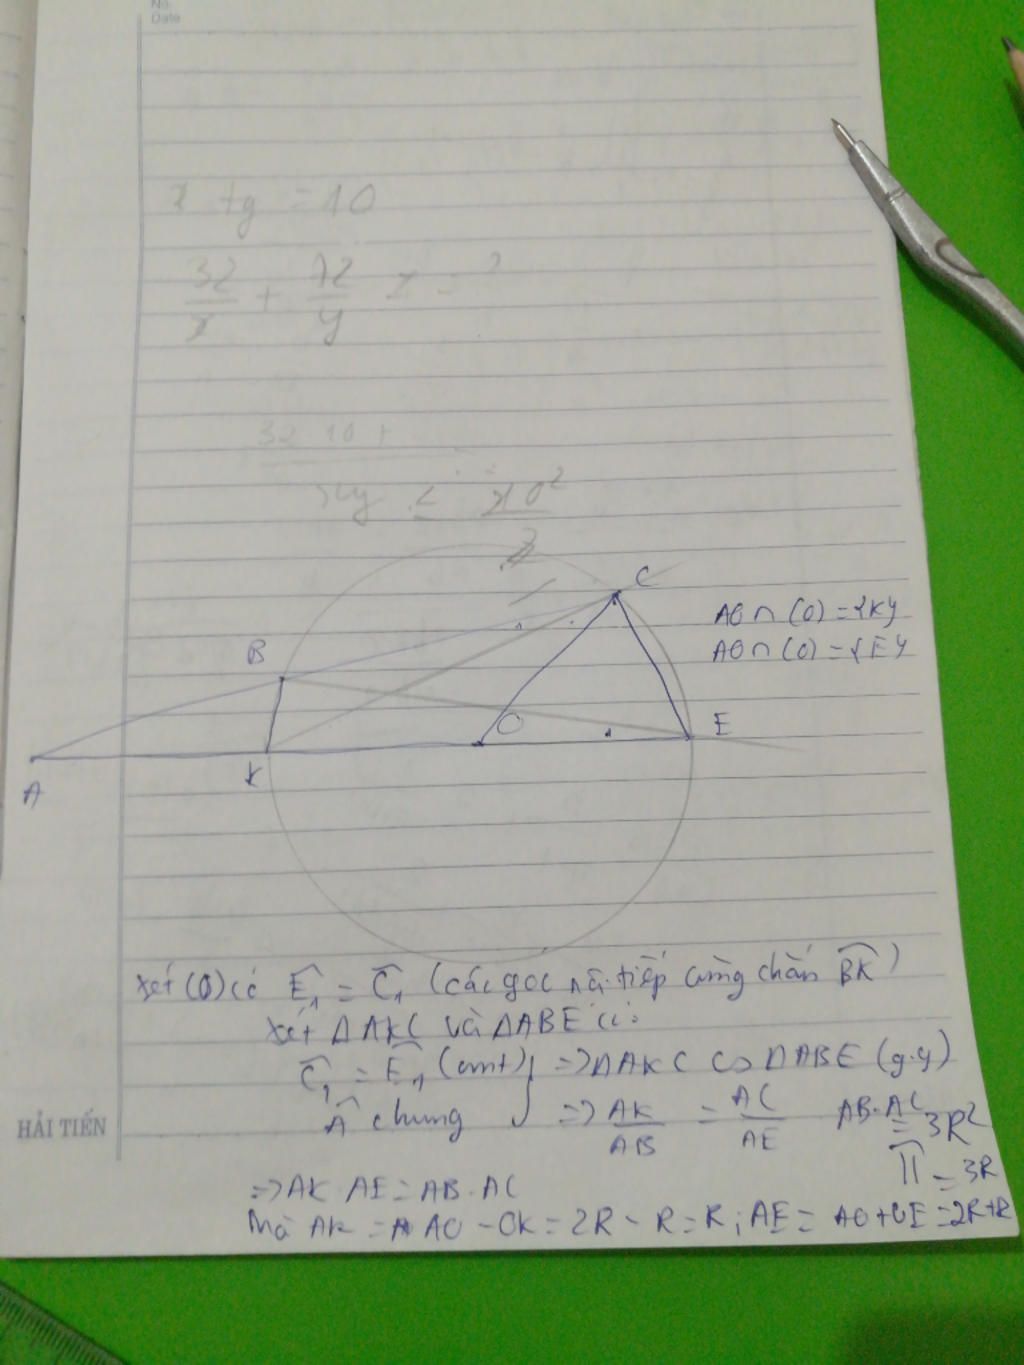 No.
Date
x + y = 10
32/x + 72/y
32 10 +
xy ≤ 10²/2
C
AO ∩ (O) = {K}
AO ∩ (O) = {E}
B
O
E
A
K
Xét (O) có Ê₁ = Ĉ₁ (các góc nội tiếp cùng chắn BK)
Xét ΔAKC và ΔABE có:
Ĉ₁ = Ê₁ (cmt) } => ΔAKC ∽ ΔABE (g.g)
Â chung => AK/AB = AC/AE AB.AC = 3R²
= 3R
HẢI TIẾN
=> AK.AE = AB.AC
Mà AK = AO - OK = 2R - R = R; AE = AO + OE = 2R + R